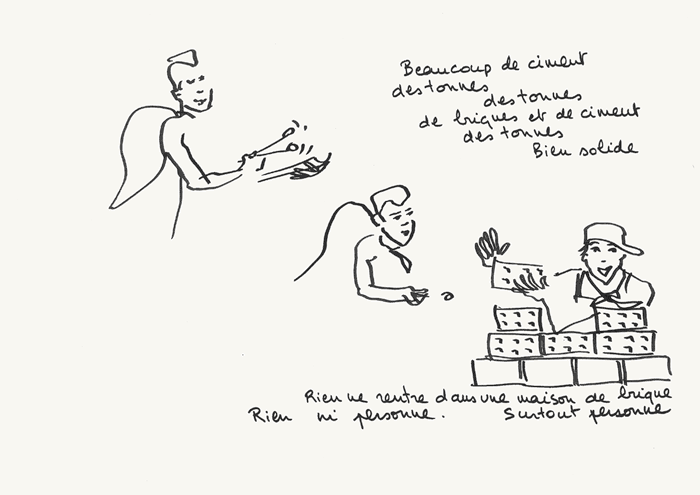 Beaucoup de ciment
des tonnes
des tonnes
de briques et de ciment
des tonnes
Bien solide
Rien ne rentre dans une maison de brique
Rien ni personne. Surtout personne